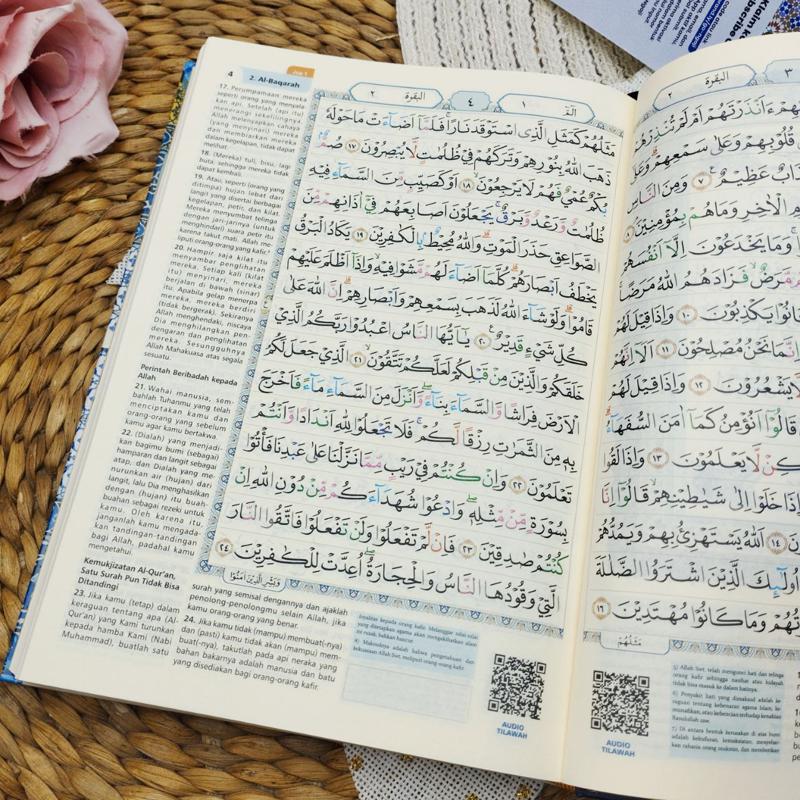 4
2. Al-Baqarah
Juz 1
17. Perumpamaan mereka
seperti orang yang menyala-
kan api. Setelah (api itu)
menerangi sekelilingnya,
Allah melenyapkan cahaya
(yang menyinari) mereka
dan membiarkan mereka
dalam kegelapan, tidak dapat
melihat.
18. (Mereka) tuli, bisu, lagi
buta, sehingga mereka tidak
dapat kembali.
19. Atau, seperti (orang yang
ditimpa) hujan lebat dari
langit yang disertai berbagai
kegelapan, petir, dan kilat.
Mereka menyumbat telinga
dengan jari-jarinya (untuk
menghindari) suara petir itu
karena takut mati. Allah me-
liputi orang-orang yang kafir.
20. Hampir saja kilat itu
menyambar penglihatan
mereka. Setiap kali (kilat
itu) menyinari, mereka
berjalan di bawah (sinar)
itu. Apabila gelap menerpa
mereka, mereka berdiri
(tidak bergerak). Sekiranya
Allah menghendaki, niscaya
Dia menghilangkan pen-
dengaran dan penglihatan
mereka. Sesungguhnya
Allah Mahakuasa atas segala
sesuatu.
Perintah Beribadah kepada
Allah
21. Wahai manusia, sem-
bahlah Tuhanmu yang telah
menciptakan kamu dan
orang-orang yang sebelum
kamu agar kamu bertakwa.
22. (Dialah) yang menjadi-
kan bagimu bumi (sebagai)
hamparan dan langit sebagai
atap, dan Dialah yang me-
nurunkan air (hujan) dari
langit, lalu Dia menghasilkan
dengan (hujan) itu buah-
buahan sebagai rezeki untuk
kamu. Oleh karena itu,
janganlah kamu mengada-
kan tandingan-tandingan
bagi Allah, padahal kamu
mengetahui.
Kemukjizatan Al-Qur'an,
Satu Surah Pun Tidak Bisa
Ditandingi
23. Jika kamu (tetap) dalam
keraguan tentang apa (Al-
Qur'an) yang Kami turunkan
kepada hamba Kami (Nabi
Muhammad), buatlah satu
surah yang semisal dengannya dan ajaklah
penolong-penolongmu selain Allah, jika
kamu orang-orang yang benar.
24. Jika kamu tidak (mampu) membuat(-nya)
dan (pasti) kamu tidak akan (mampu) mem-
buat(-nya), takutlah pada api neraka yang
bahan bakarnya adalah manusia dan batu
yang disediakan bagi orang-orang kafir.
٢ البقرة ٤ ١ الۤمّۤ
مَثَلُهُمْ كَمَثَلِ الَّذِى اسْتَوْقَدَ نَارًاۚ فَلَمَّآ اَضَاۤءَتْ مَا حَوْلَهٗ
ذَهَبَ اللّٰهُ بِنُوْرِهِمْ وَتَرَكَهُمْ فِيْ ظُلُمٰتٍ لَّا يُبْصِرُوْنَ ١٧ صُمٌّۢ
بُكْمٌ عُمْيٌ فَهُمْ لَا يَرْجِعُوْنَۙ ١٨ اَوْ كَصَيِّبٍ مِّنَ السَّمَاۤءِ فِيْهِ
ظُلُمٰتٌ وَّرَعْدٌ وَّبَرْقٌۚ يَجْعَلُوْنَ اَصَابِعَهُمْ فِيْٓ اٰذَانِهِمْ مِّنَ
الصَّوَاعِقِ حَذَرَ الْمَوْتِۗ وَاللّٰهُ مُحِيْطٌۢ بِالْكٰفِرِيْنَ ١٩ يَكَادُ الْبَرْقُ
يَخْطَفُ اَبْصَارَهُمْۗ كُلَّمَآ اَضَاۤءَ لَهُمْ مَّشَوْا فِيْهِۙ وَاِذَآ اَظْلَمَ عَلَيْهِمْ
قَامُوْاۗ وَلَوْ شَاۤءَ اللّٰهُ لَذَهَبَ بِسَمْعِهِمْ وَاَبْصَارِهِمْۗ اِنَّ اللّٰهَ عَلٰى
كُلِّ شَيْءٍ قَدِيْرٌ ٢٠ يٰٓاَيُّهَا النَّاسُ اعْبُدُوْا رَبَّكُمُ الَّذِيْ
خَلَقَكُمْ وَالَّذِيْنَ مِنْ قَبْلِكُمْ لَعَلَّكُمْ تَتَّقُوْنَۙ ٢١ الَّذِيْ جَعَلَ لَكُمُ
الْاَرْضَ فِرَاشًا وَّالسَّمَاۤءَ بِنَاۤءًۖ وَّاَنْزَلَ مِنَ السَّمَاۤءِ مَاۤءً فَاَخْرَجَ
بِهٖ مِنَ الثَّمَرٰتِ رِزْقًا لَّكُمْۚ فَلَا تَجْعَلُوْا لِلّٰهِ اَنْدَادًا وَّاَنْتُمْ
تَعْلَمُوْنَ ٢٢ وَاِنْ كُنْتُمْ فِيْ رَيْبٍ مِّمَّا نَزَّلْنَا عَلٰى عَبْدِنَا فَأْتُوْا
بِسُوْرَةٍ مِّنْ مِّثْلِهٖۖ وَادْعُوْا شُهَدَاۤءَكُمْ مِّنْ دُوْنِ اللّٰهِ اِنْ
كُنْتُمْ صٰدِقِيْنَ ٢٣ فَاِنْ لَّمْ تَفْعَلُوْا وَلَنْ تَفْعَلُوْا فَاتَّقُوا النَّارَ
الَّتِيْ وَقُوْدُهَا النَّاسُ وَالْحِجَارَةُۖ اُعِدَّتْ لِلْكٰفِرِيْنَ ٢٤
وَبَشِّرِ الَّذِيْنَ اٰمَنُوْا
AUDIO
TILAWAH
٢ البقرة ٣
ءَاَنْذَرْتَهُمْ اَمْ لَمْ تُنْذِرْهُمْ
قُلُوْبِهِمْ وَعَلٰى سَمْعِهِمْۗ وَعَلٰٓى
عَظِيْمٌ ٧ وَمِنَ النَّاسِ
الْاٰخِرِ وَمَا هُمْ بِمُؤْمِنِيْنَۘ ٨
وَمَا يَخْدَعُوْنَ اِلَّآ اَنْفُسَهُمْ
مَّرَضٌۙ فَزَادَهُمُ اللّٰهُ مَرَضًاۚ
يَكْذِبُوْنَ ١٠ وَاِذَا قِيْلَ لَهُمْ
اِنَّمَا نَحْنُ مُصْلِحُوْنَ ١١ اَلَآ اِنَّهُمْ
لَّا يَشْعُرُوْنَ ١٢ وَاِذَا قِيْلَ لَهُمْ
قَالُوْٓا اَنُؤْمِنُ كَمَآ اٰمَنَ السُّفَهَاۤءُۗ
لَّا يَعْلَمُوْنَ ١٣ وَاِذَا لَقُوا
خَلَوْا اِلٰى شَيٰطِيْنِهِمْۙ قَالُوْٓا اِنَّا
١٤ اَللّٰهُ يَسْتَهْزِئُ بِهِمْ وَيَمُدُّهُمْ
اُولٰۤىِٕكَ الَّذِيْنَ اشْتَرَوُا الضَّلٰلَةَ
وَمَا كَانُوْا مُهْتَدِيْنَ ١٦
مَثَلُهُمْ
AUDIO
TILAWAH